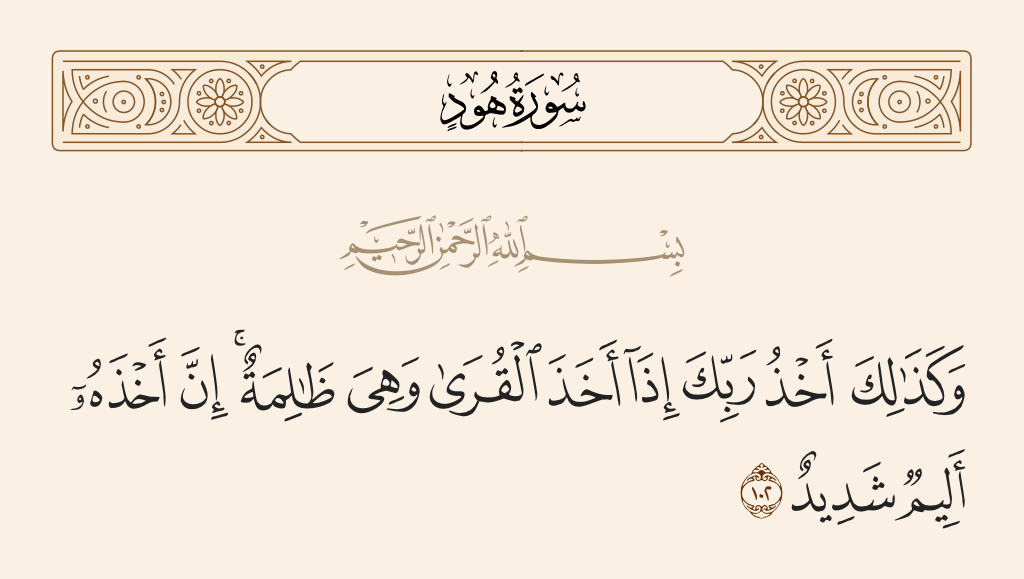 سُورَةُ هُودٍ
بِسْمِ ٱللَّهِ ٱلرَّحْمَٰنِ ٱلرَّحِيمِ
وَكَذَٰلِكَ أَخْذُ رَبِّكَ إِذَآ أَخَذَ ٱلْقُرَىٰ وَهِىَ ظَٰلِمَةٌ ۚ إِنَّ أَخْذَهُۥٓ
أَلِيمٌ شَدِيدٌ ١٠٢